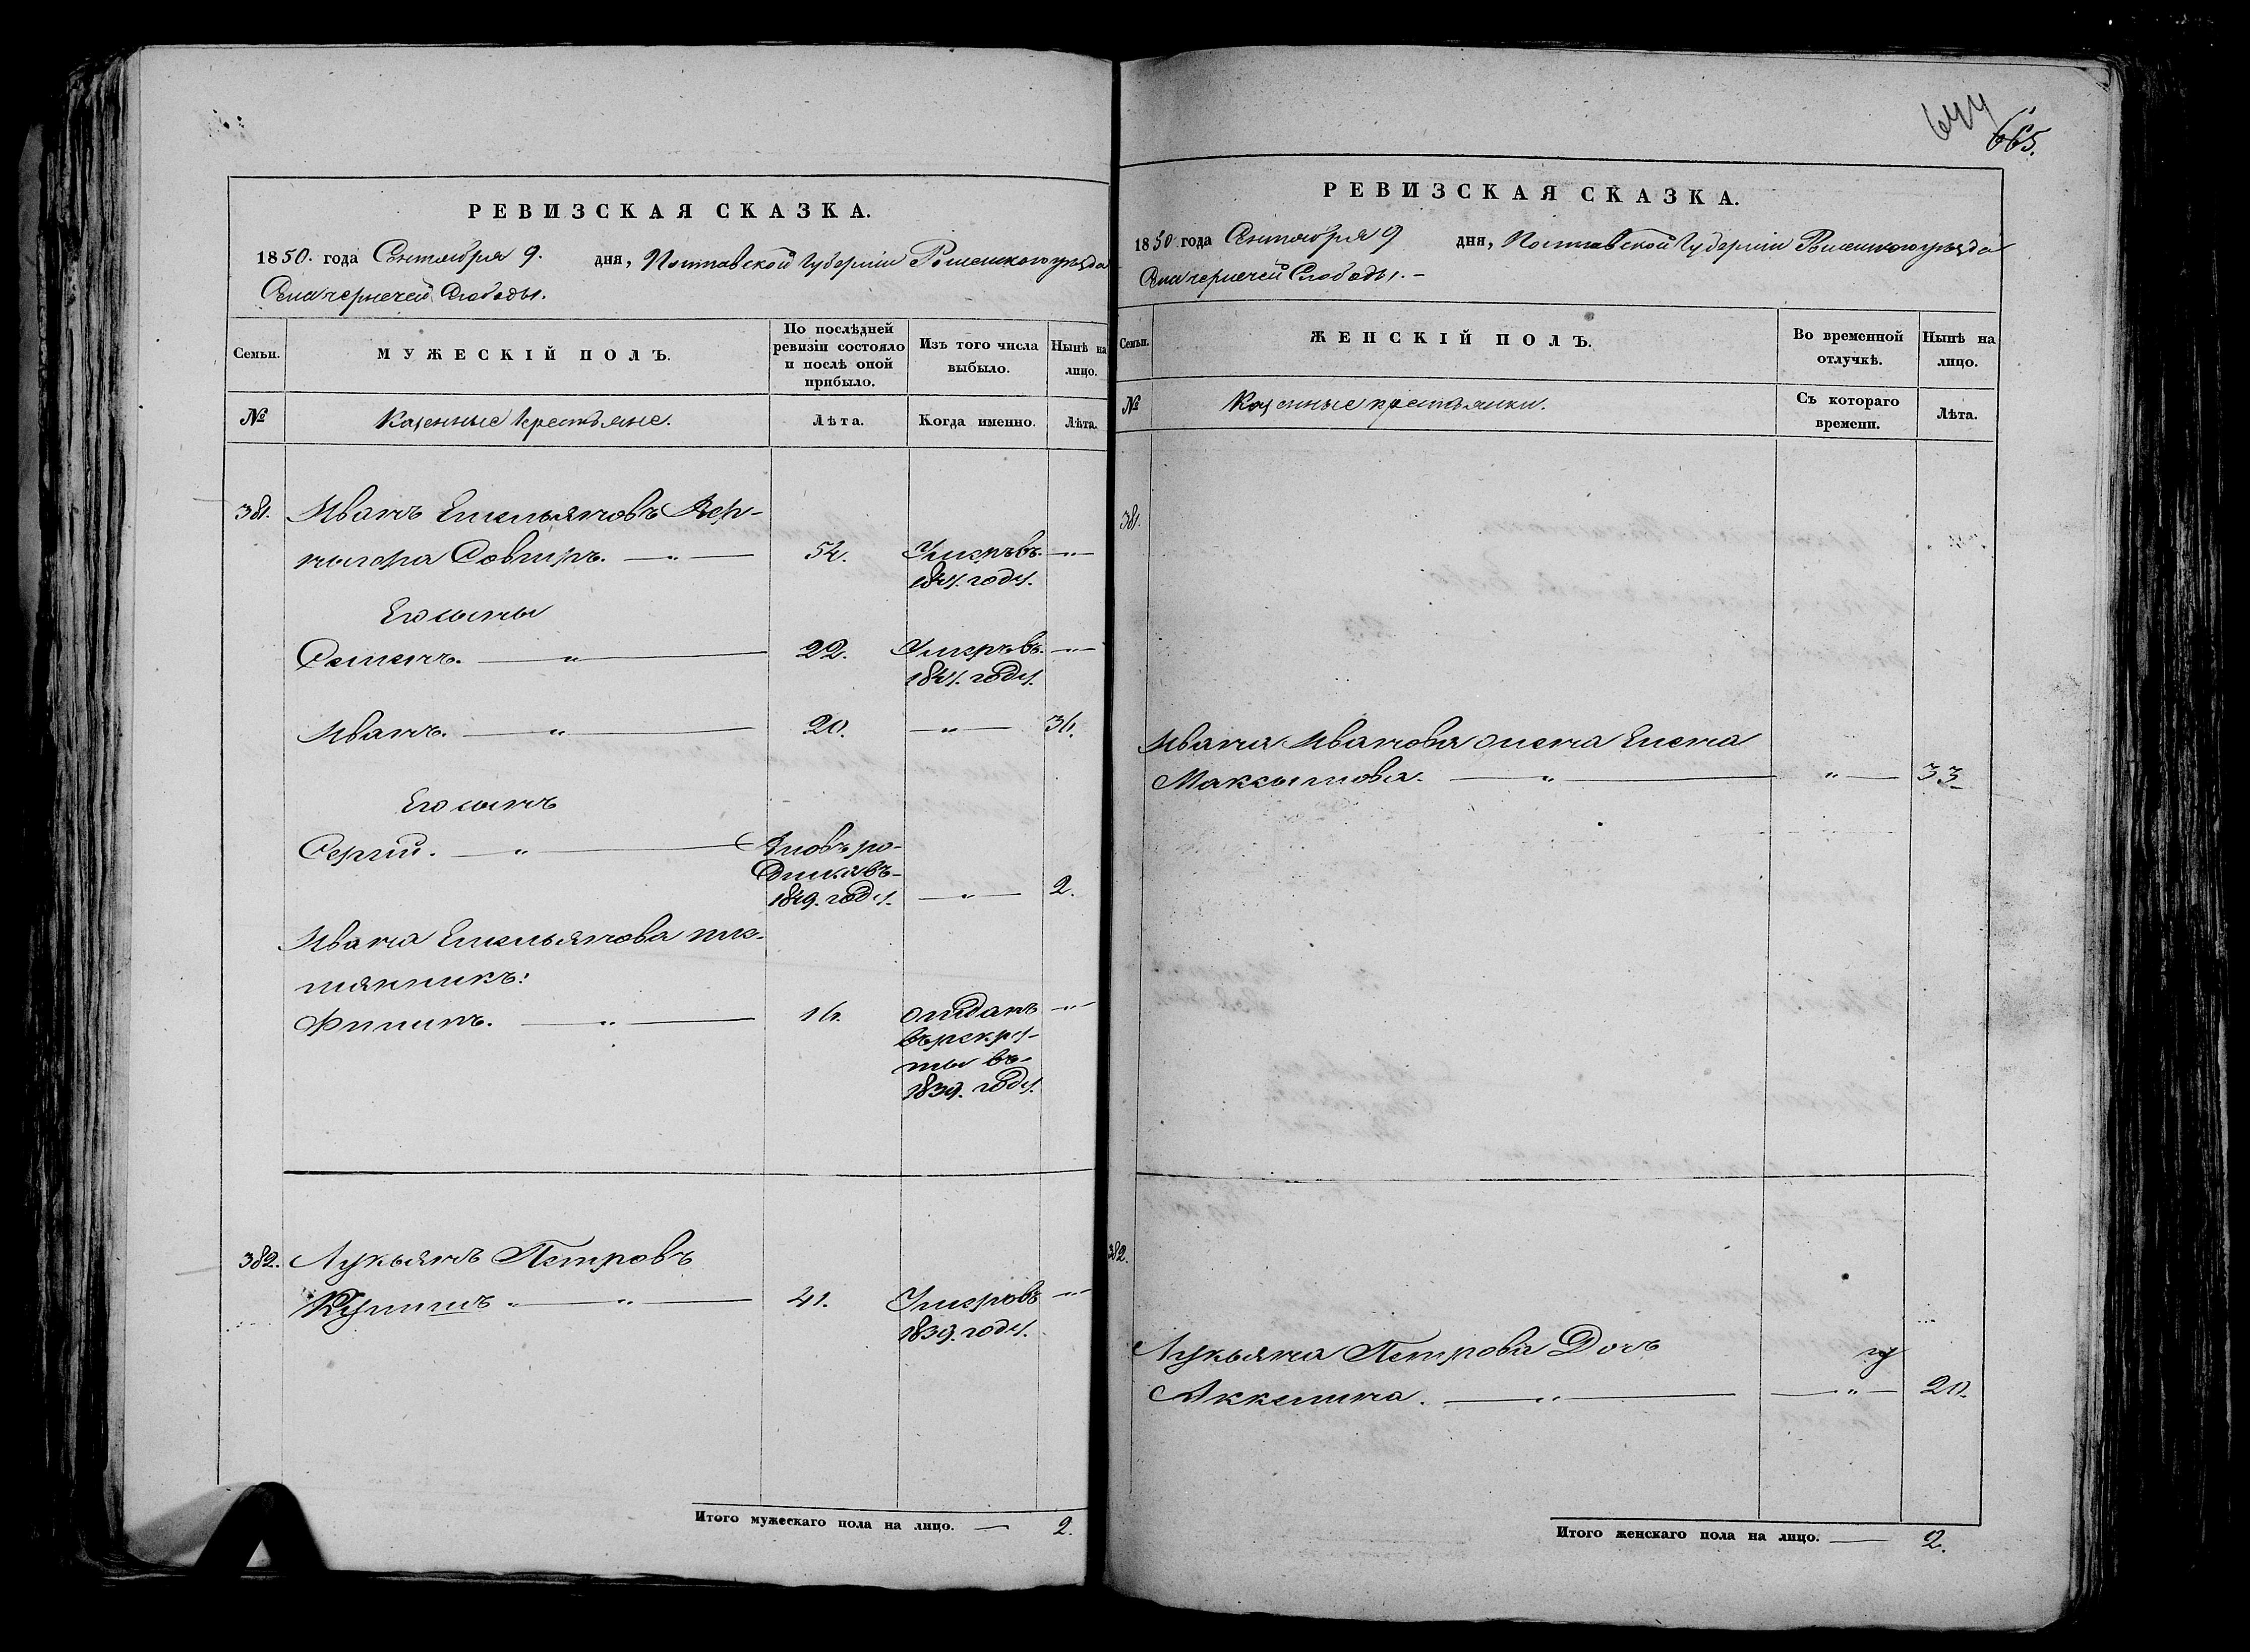 РЕВИЗСКАЯ СКАЗКА.
1850. года Сентября 9. дня, Полтавской Губернии Роменского уезда
Села чернечей Слободы.
Семьи.
МУЖЕСКІЙ ПОЛЪ.
По послѣдней ревизіи состояло и послѣ оной прибыло.
Изъ того числа выбыло.
Нынѣ на лицо.
№
Казенные крестьяне.
Лѣта.
Когда именно.
Лѣта.
381. Иванъ Емельяновъ
54. Умеръ въ
1841. году.
Его сыны
Семенъ. 22. Умеръ въ
1841. году.
Иванъ. 20. 36.
Его сынъ
Сергій. Вновь ро-
дился въ
1849. году. 2.
Ивана Емельянова пле-
мянникъ:
Филипъ. 16. отданъ
въ рекру-
ты въ
1839. году.
382. Лукьянъ Петровъ
41. Умеръ въ
1839. году.
Итого мужескаго пола на лицо. 2.
644
665.
РЕВИЗСКАЯ СКАЗКА.
1850 года Сентября 9 дня, Полтавской Губернии Роменского уезда
Села чернечей Слободы.
Семьи.
ЖЕНСКІЙ ПОЛЪ.
Во временной отлучкѣ.
Нынѣ на лицо.
№
Казенные крестьянки.
Съ котораго времени.
Лѣта.
381.
Ивана Иванова жена Елена
Максимова. 33
382.
Лукьяна Петрова Дочь
Аккилина. 20.
Итого женскаго пола на лицо. 2.